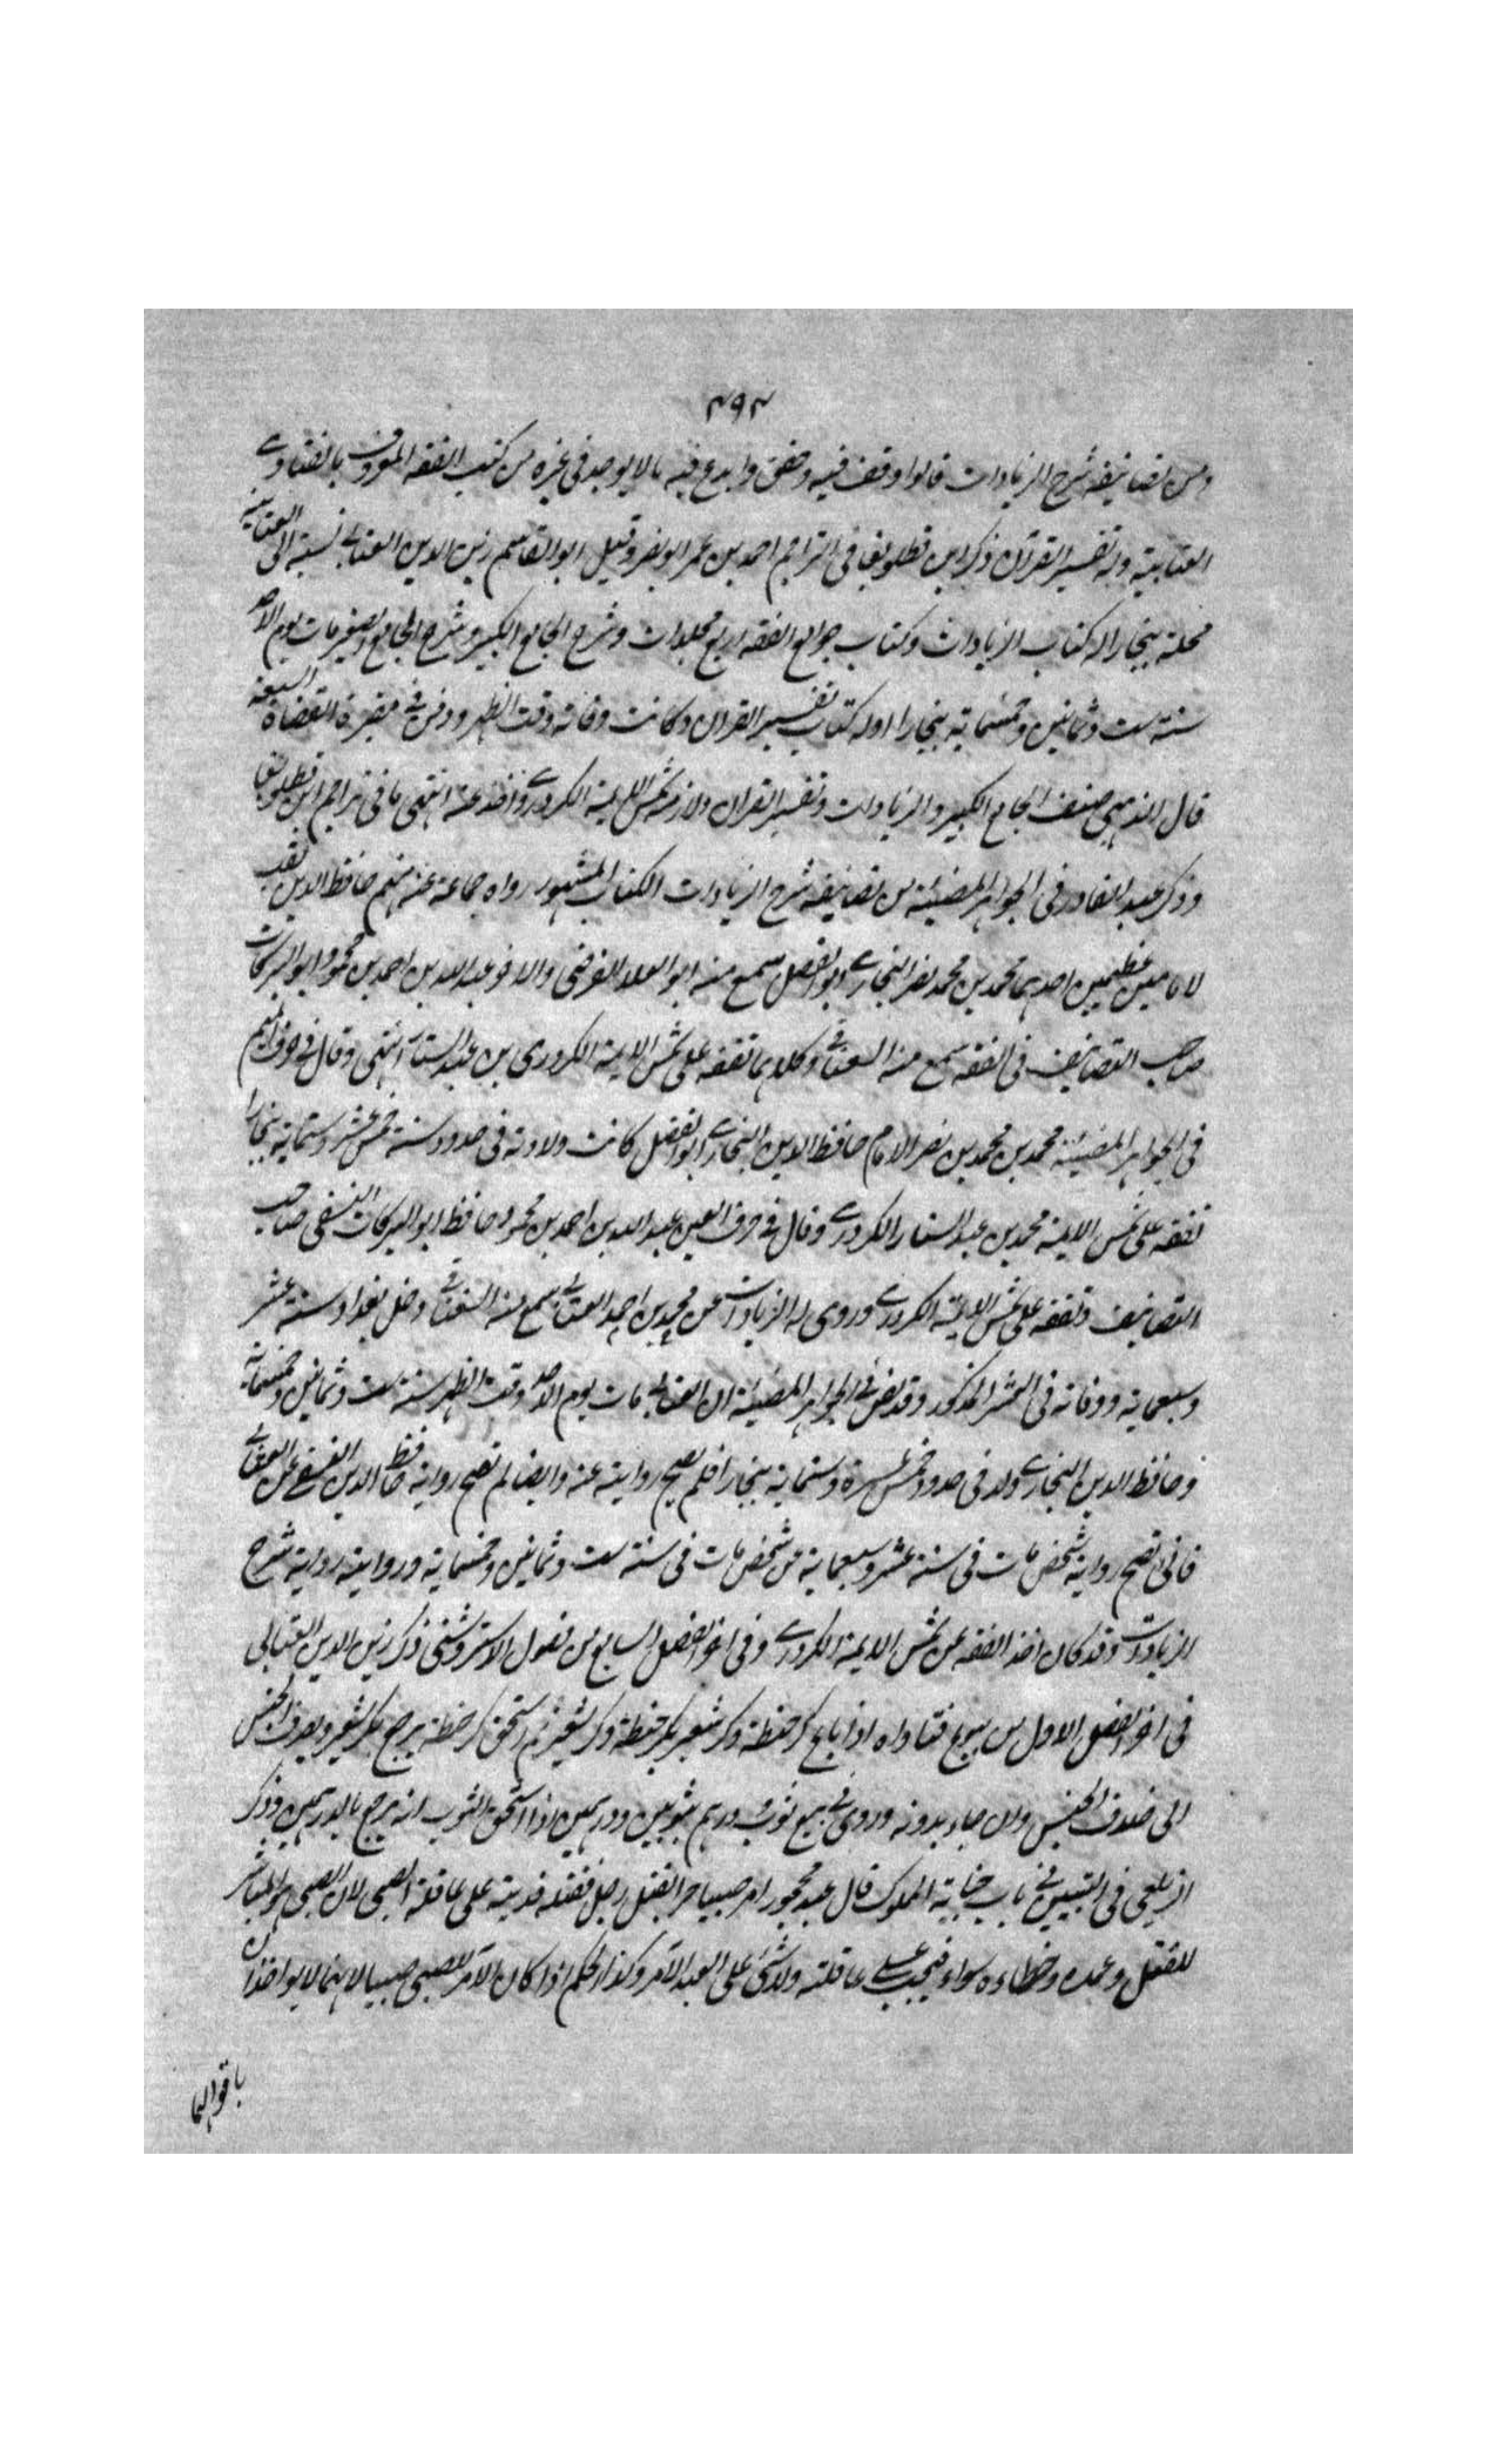 ٤٩٢
ومن تصانيفه شرح الزيادات قالوا وقف فيه وحقق وابدع فيه مالا يوجد فى غيره من كتب الفقه المعروف بالفتاوے
العتابية وله تفسير القرآن ذكر ابن قطلوبغا فى التراجم احمد بن عمر ابو نصر وقيل ابو القاسم زين الدين العتابے نسبة الى العتابية
محلة ببخارا له كتاب الزيادات وكتاب جوامع الفقه اربع مجلدات وشرح الجامع الكبير وشرح الجامع الصغير مات يوم الاحد
سنة ست وثمانين وخمسماية ببخارا وله كتاب تفسير القران وكانت وفاته وقت الظهر ودفن فے مقبرة القضاة السبعة
قال الذهبي صنف الجامع الكبير والزيادات وتفسير القران ولازمه شمس الايمة الكردرے واخذ عنه انتهى ما فى تراجم ابن قطلوبغا
وذكر عبد القادر فى الجواهر المضيئة من تصانيفه شرح الزيادات الكتاب المشهور رواه جماعة عنه منهم حافظ الدين لقب
لامامين عظيمين احدهما محمد بن محمد نصر البخارے ابو الفضل سمع منه ابو العلا الفرضى والاخر عبد الله بن احمد بن محمود ابو البركات
صاحب التصانيف فى الفقه سمع منه السغناقے وكلاهما تفقه على شمس الايمة الكردرى بن عبد الستار انتهى وقال فے حرف الميم
فى الجواهر المضيئة محمد بن محمد بن نصر الامام حافظ الدين البخارے ابو الفضل كانت ولادته فى حدود سنة خمس عشر وستماية ببخارا
تفقه على شمس الايمة محمد بن عبد الستار الكردرے وقال فے حرف العين عبد الله بن احمد بن محمود حافظ ابو البركات النسفى صاحب
التصانيف وتفقه على شمس الايمة الكردرے وروى له الزيادات عن محمد بن احمد العتابے سمع منه السغناقے دخل بغداد سنة عشر
وسبعماية ووفاته فى العشر المذكور وقد نص فے الجواهر المضيئة ان العتابے مات يوم الاحد وقت الظهر سنة ست وثمانين وخمسماية
وحافظ الدين البخارے ولد فى حدود خمس عشرة وستماية ببخارا فلم يصح روايته عنه وايضا لم تصح رواية حافظ الدين النسفے عن العتابے
فانى تصح رواية شخص مات فى سنة عشر وسبعماية من شخص مات فى سنة ست وثمانين وخمسماية وروايته رواية شرح
الزيادات وقد كان اخذ الفقه عن شمس الايمة الكردرے وفى اخر الفصل السابع من فصول الاستروشنى ذكر زين الدين العتابى
فى اخر الفصل الاول من بيوع فتاواه اذا باع كر حنطة وكر شعير بكر حنطة وكر شعير ثم استحق كر حنطة يرجع بكر الشعير ويصرف الجنس
الى خلاف الجنس وان جاد بدونه وروى فے بيع ثوب ودرهم بثوبين ودرهمين اذا استحق الثوب انه يرجع بالدرهمين وذكر
الزيلعى فى التبيين فے باب جناية المملوك قال عبد محجور امر صبيا حرا بقتل رجل فقتله فديته على عاقلة الصبى لان الصبى هو المباشر
للقتل وعمده وخطاءه سواء فيجب علے عاقلته ولا شئ على العبد الآمر وكذا الحكم اذا كان الآمر للصبى صبيا لانهما لا يواخذان
باقوالهما